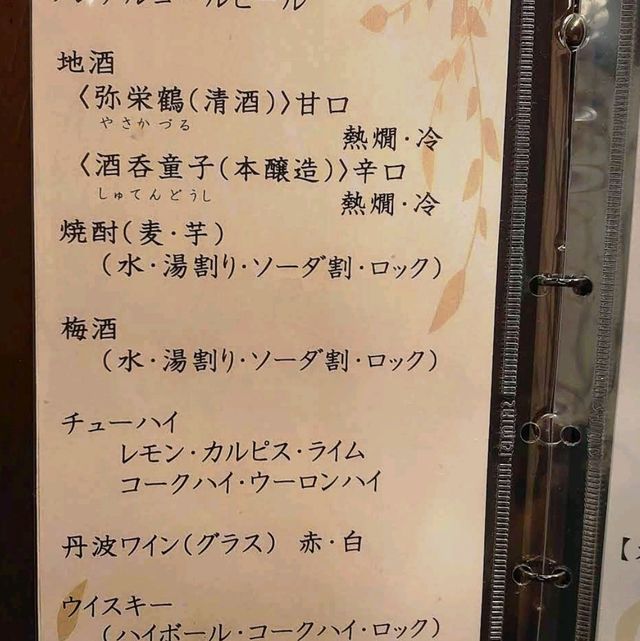 ノンアルコールビール
地酒
〈弥栄鶴(清酒)〉甘口
やさかづる
熱燗・冷
〈酒呑童子(本醸造)〉辛口
しゅてんどうし
熱燗・冷
焼酎(麦・芋)
(水・湯割り・ソーダ割・ロック)
梅酒
(水・湯割り・ソーダ割・ロック)
チューハイ
レモン・カルピス・ライム
コークハイ・ウーロンハイ
丹波ワイン(グラス) 赤・白
ウイスキー
(ハイボール・コークハイ・ロック)